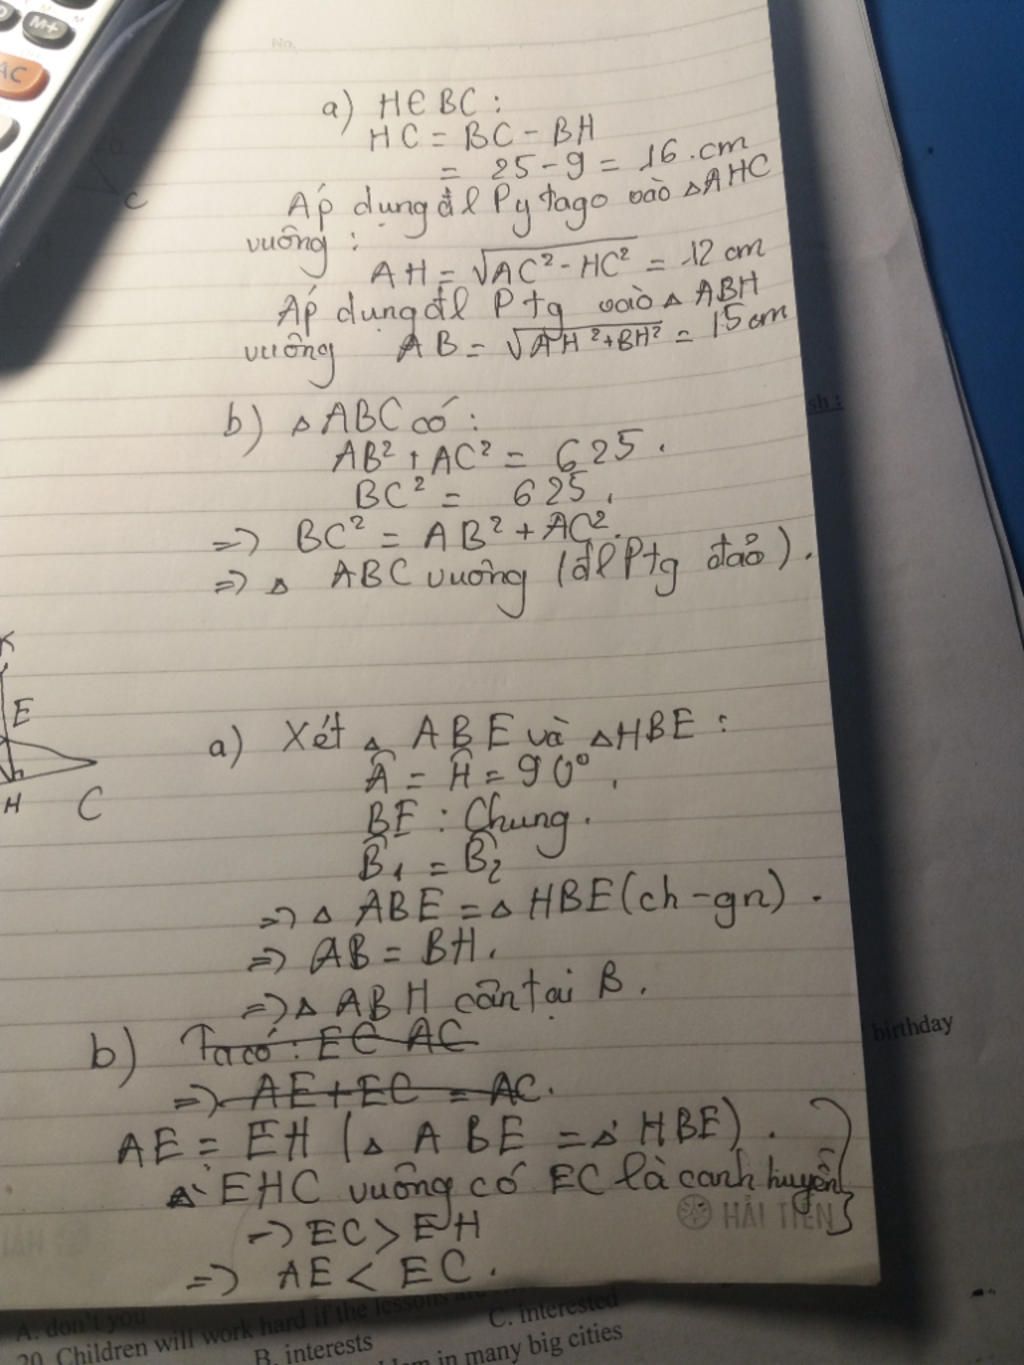 No.
M+
AC
C
a) H∈BC:
HC = BC - BH
= 25-9 = 16.cm
Áp dụng đl Pytago vào ▵AHC
vuông:
AH = √AC²-HC² = 12 cm
Áp dụng đl Ptg vào ▵ ABH
vuông AB = √AH²+BH² = 15cm
b) ▵ABC có:
AB²+AC² = 625.
BC² = 625.
=> BC² = AB²+AC².
=> ▵ ABC vuông (đl Ptg đảo).
K
E
H C
a) Xét ▵ ABE và ▵HBE:
Â = Ĥ = 90°.
BE : Chung.
B̂₁ = B̂₂
=> ▵ ABE = ▵ HBE (ch-gn).
=> AB = BH.
=> ▵ ABH cân tại B.
b) Ta có: EC AC
=> AE+EC = AC.
AE = EH (▵ ABE = ▵ HBE).
▵ EHC vuông có EC là canh huyền
=> EC > EH
=> AE < EC.
HẢI TIẾN
sh :
birthday
A. don't you
20. Children will work hard if the lessons are
C. interested
B. interests
in many big cities